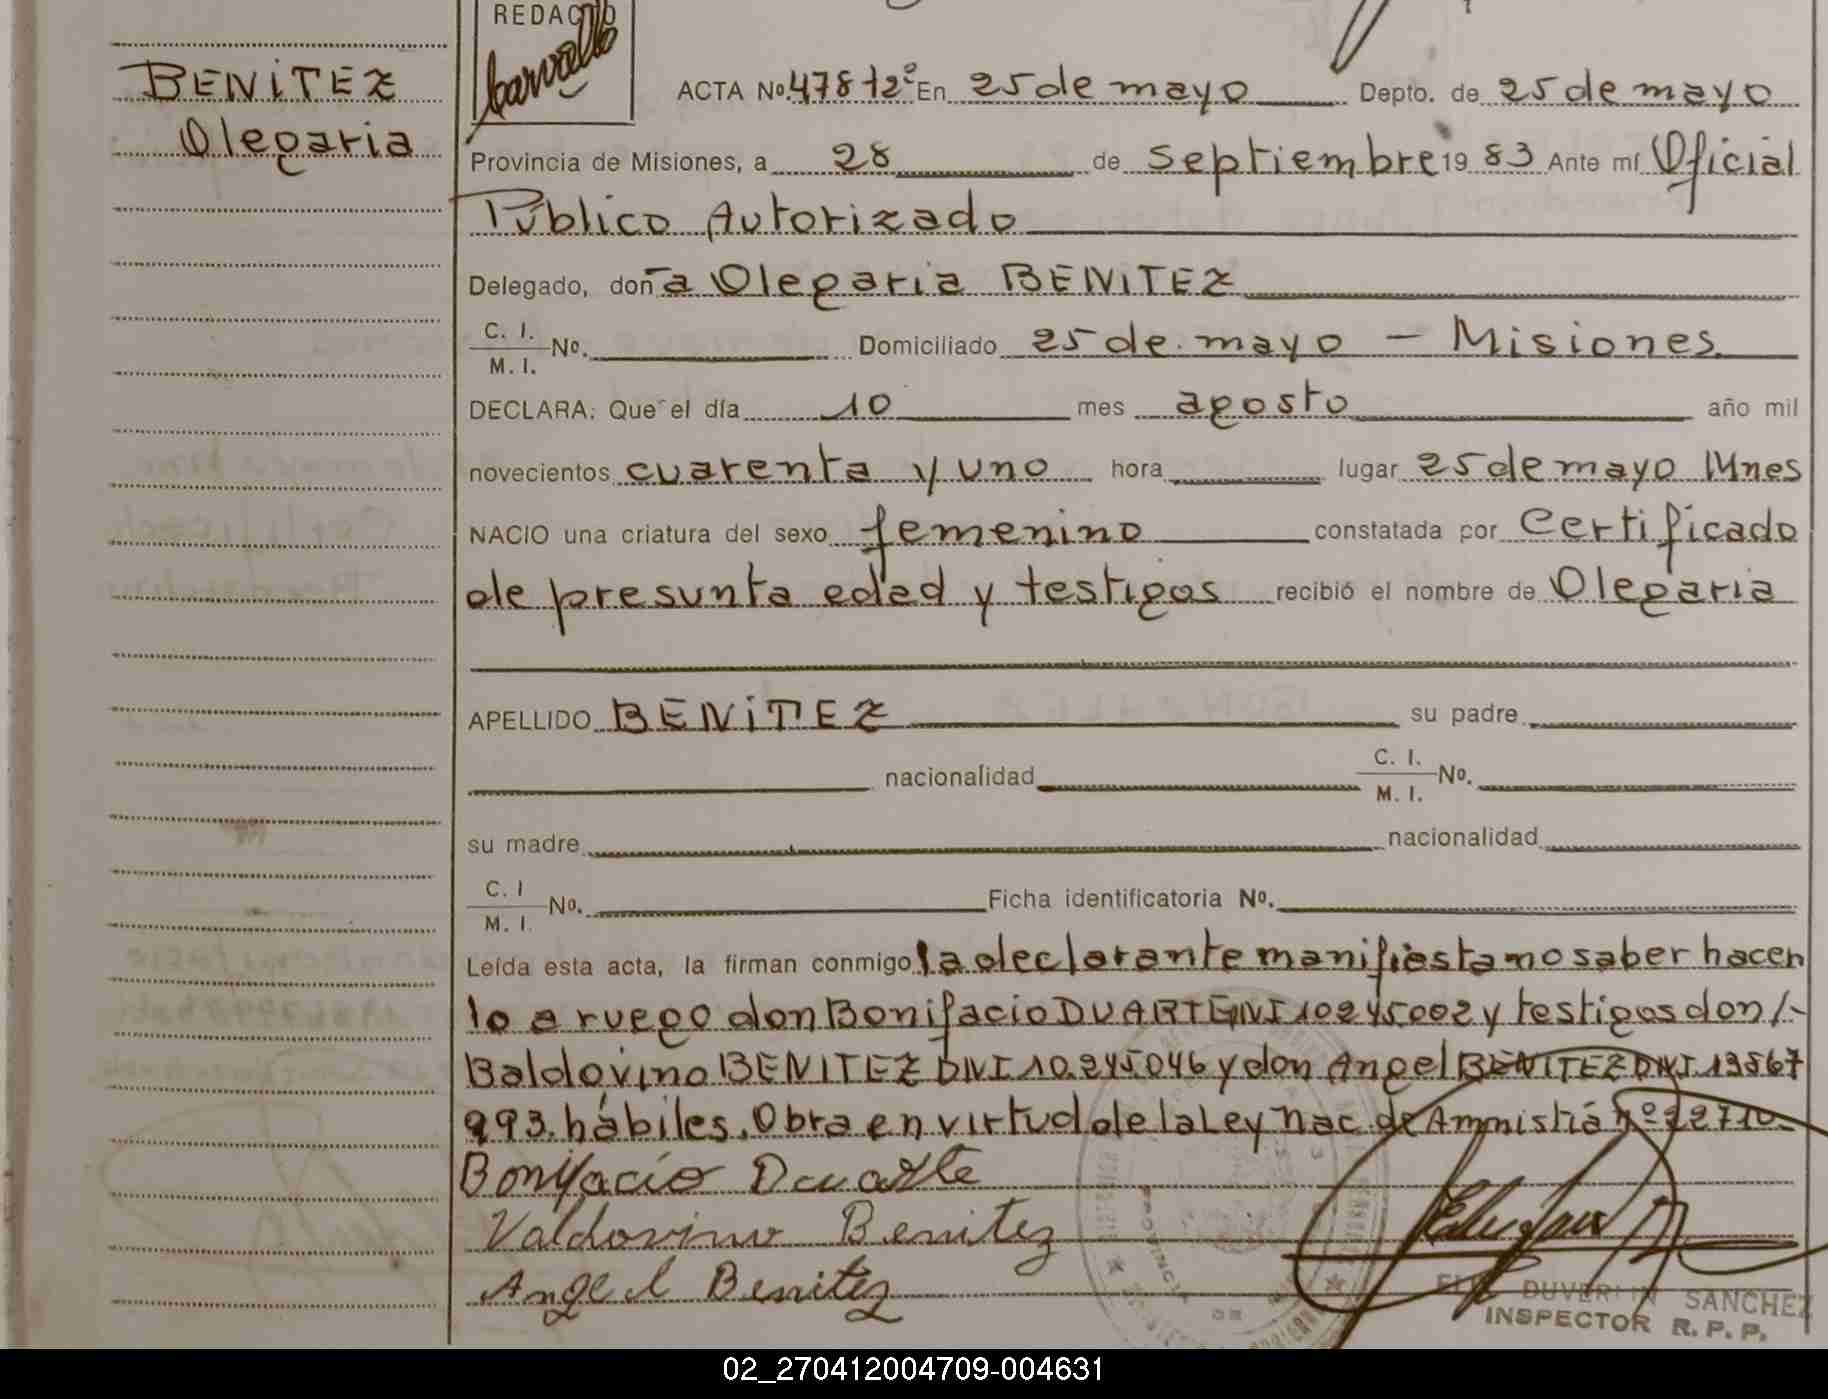 REDACTO
BENITEZ
Olegaria
ACTA Nº. 478 t2º En 25 de mayo Depto. de 25 de mayo
Provincia de Misiones, a 28 de Septiembre 19 83 Ante mí Oficial
Público Autorizado
Delegado, doña Olegaria BENITEZ
C. I. / M. I. Nº. Domiciliado 25 de mayo - Misiones
DECLARA: Que el día 10 mes agosto año mil
novecientos cuarenta y uno hora lugar 25 de mayo Mnes
NACIO una criatura del sexo femenino constatada por Certificado
de presunta edad y testigos recibió el nombre de Olegaria
APELLIDO BENITEZ su padre
nacionalidad C. I. / M. I. Nº.
su madre nacionalidad
C. I / M. I. Nº. Ficha identificatoria Nº.
Leída esta acta, la firman conmigo la declarante manifiesta no saber hacer
lo a ruego don Bonifacio DUARTE DNI 10245002 y testigos don/.-
Baldovino BENITEZ DNI 10.245.046 y don Angel BENITEZ DNI.13567
993. hábiles. Obra en virtud de la Ley nac. de Amnistiá nº 22710-
Bonifacio Duarte
Valdovino Benitez
Angel Benitez
SANCHEZ
INSPECTOR R. P. P.
02_270412004709-004631